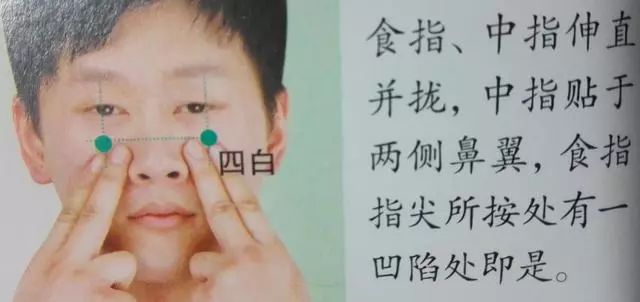 四白
食指、中指伸直
并拢，中指贴于
两侧鼻翼，食指
指尖所按处有一
凹陷处即是。